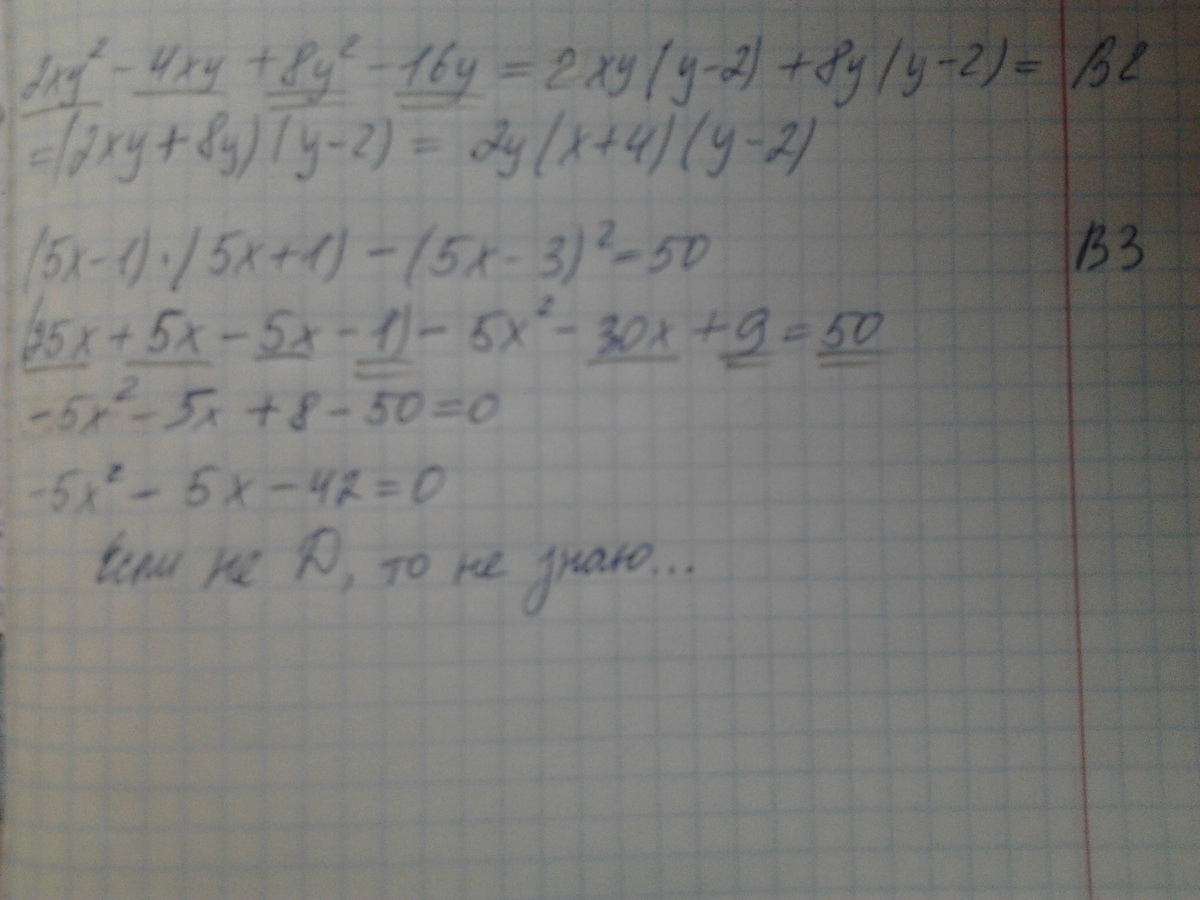 2xy² - 4xy + 8y² - 16y = 2xy(y-2) + 8y(y-2) = B2
=(2xy + 8y)(y-2) = 2y(x+4)(y-2)
(5x-1)·(5x+1) - (5x-3)² = 50 B3
(25x + 5x - 5x - 1) - 5x² - 30x + 9 = 50
-5x² - 5x + 8 - 50 = 0
-5x² - 5x - 42 = 0
Если не D, то не знаю...